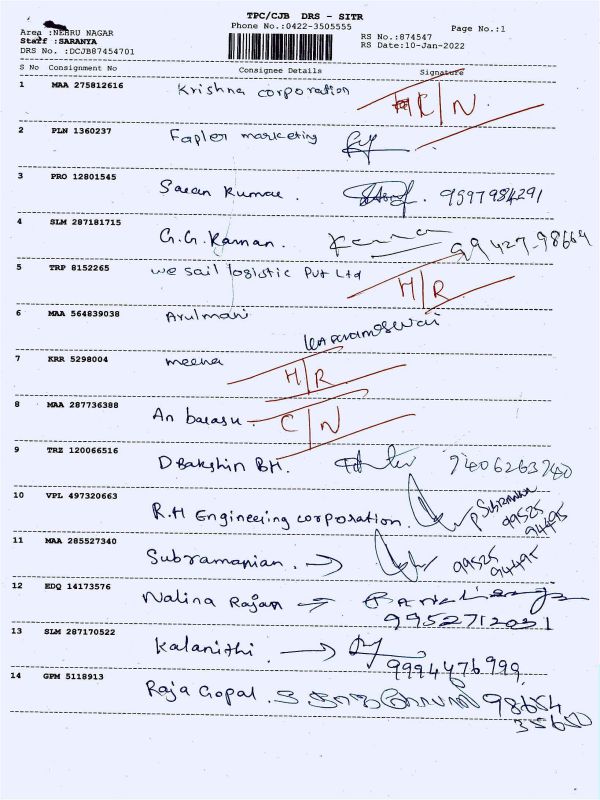 TPC/CJB DRS - SITR
Phone No.:0422-3505555
Page No.:1
Area :NEHRU NAGAR
Staff :SARANYA
DRS No. :DCJB87454701
RS No.:874547
RS Date:10-Jan-2022
S No Consignment No Consignee Details Signature
1 MAA 275812616 Krishna corporation C/N
2 PLN 1360237 Fapler marketing
3 PRO 12801545 Saran Kumar. 9597984291
4 SLM 287181715 G.G.Raman. 99427-98664
5 TRP 8152265 we sail logistic Pvt Ltd H/R
6 MAA 564839038 Arulmani
7 KRR 5298004 meena H/R
8 MAA 287736388 An barasu. C/N
9 TRZ 120066516 DBakshin BH. 7406263740
10 VPL 497320663 R.H Engineering corporation. P Subraman 99525 94495
11 MAA 285527340 Subramanian. → 99525 94495
12 EDQ 14173576 Nalina Rajan → 9952712031
13 SLM 287170522 Kalanithi → 9994476999
14 GPM 5118913 Raja Gopal. 98654
35650